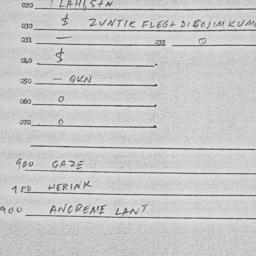 020 LAHI, S+N
030 $ ZUNTIK FLEG+ DIEOJIM KUME
031 — 032 0
040 $
050 — GKN
060 0
070 0
900 GAZE
150 HERINK
900 ANCREME LANT